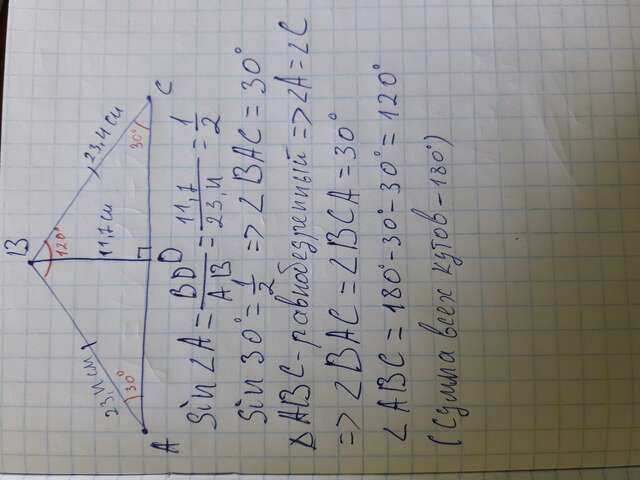 B
120°
23,4 см
11,7 см
23,4 см
30°
30°
A
D
C
Sin ∠A = BD/AB = 11,7/23,4 = 1/2
Sin 30° = 1/2 => ∠BAC = 30°
ΔABC - равнобедренный => ∠A = ∠C
=> ∠BAC = ∠BCA = 30°
∠ABC = 180° - 30° - 30° = 120°
(Сумма всех кутов - 180°)